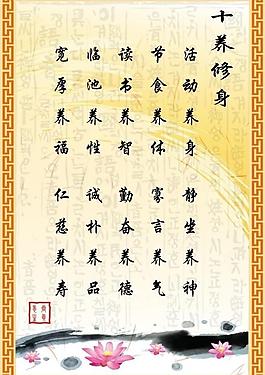 十养修身
活动养身 静坐养神
节食养体 寡言养气
读书养智 勤奋养德
临池养性 诚朴养品
宽厚养福 仁慈养寿